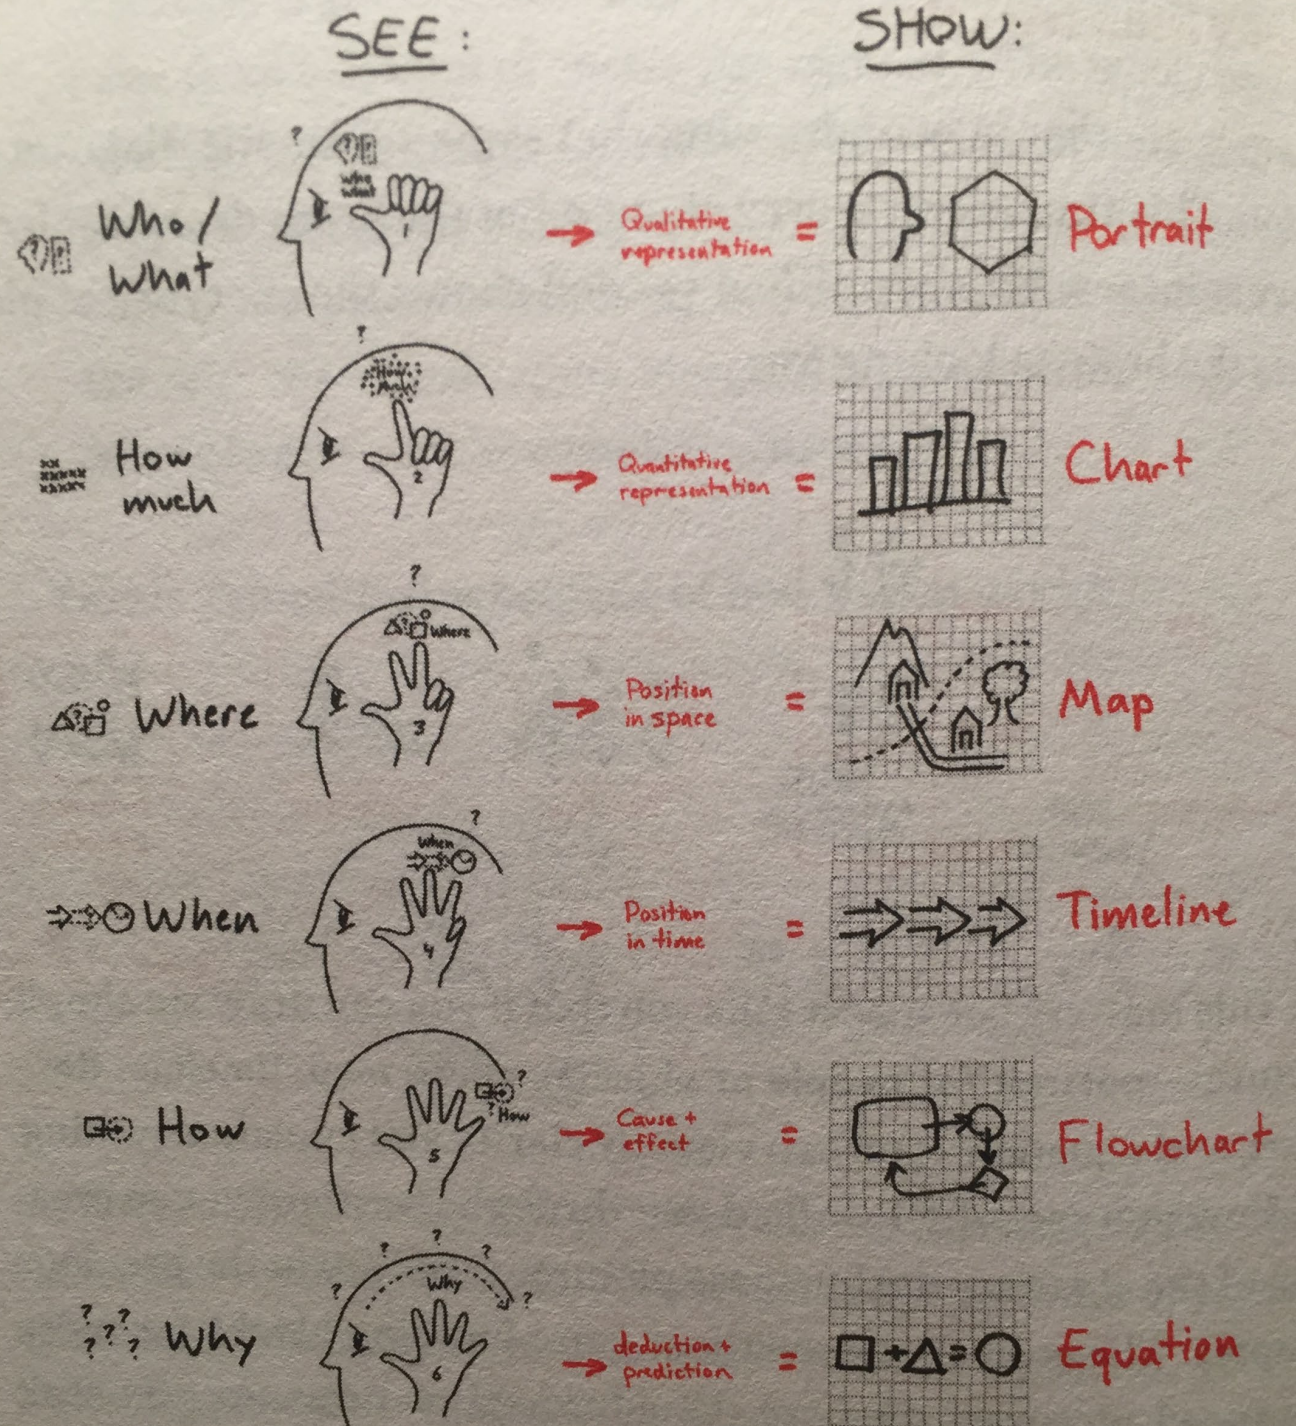 SEE:
SHOW:
Who/
What
who
what
1
Qualitative
representation
=
Portrait
How
much
How
Much
2
Quantitative
representation
=
Chart
Where
Where
3
Position
in space
=
Map
When
When
4
Position
in time
=
Timeline
How
How
5
Cause +
effect
=
Flowchart
? ? ? ? ?
Why
? ? ? ? ?
Why
6
deduction +
prediction
=
+ =
Equation